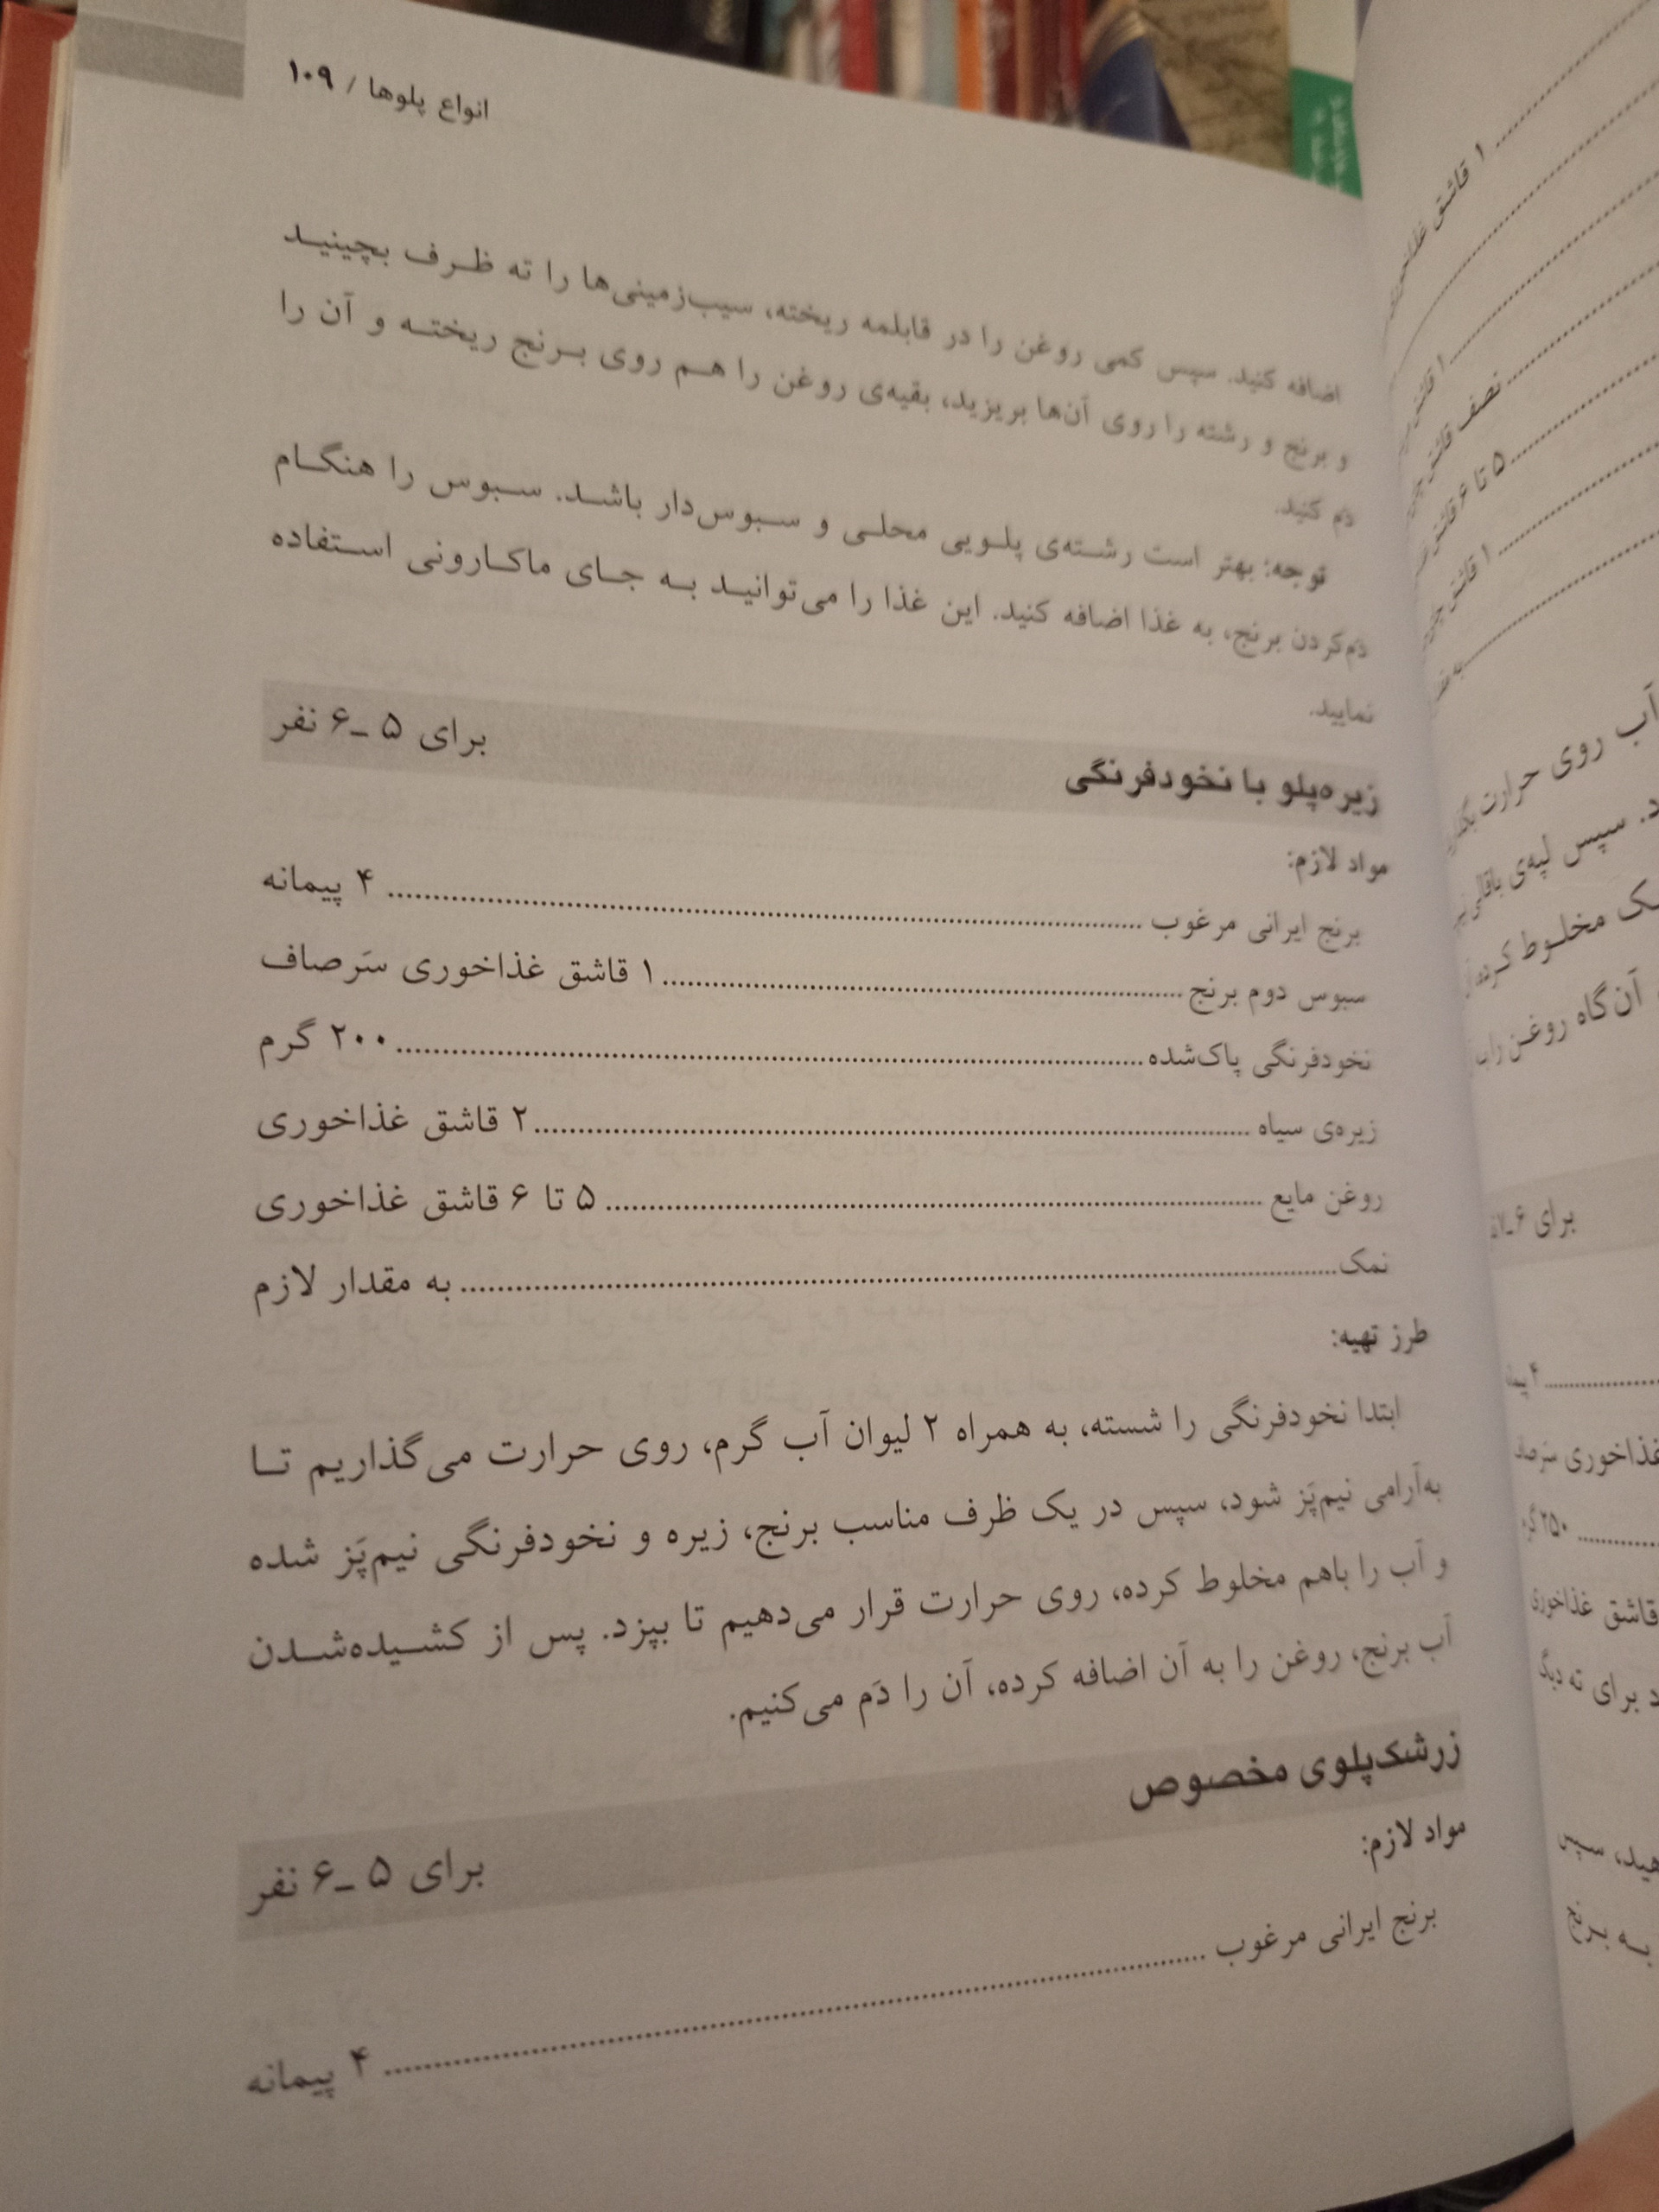 انواع پلوها / ۱۰۹
اضافه کنید. سپس کمی روغن را در قابلمه ریخته، سیب‌زمینی‌ها را ته ظرف بچینید
و برنج و رشته را روی آن‌ها بریزید، بقیه‌ی روغن را هم روی برنج ریخته و آن را
دَم کنید.
توجه: بهتر است رشته‌ی پلویی محلی و سبوس‌دار باشد. سبوس را هنگام
دَم‌کردن برنج، به غذا اضافه کنید. این غذا را می‌توانید به جای ماکارونی استفاده
نمایید.
زیره‌پلو با نخودفرنگی برای ۵ ـ۶ نفر
مواد لازم:
برنج ایرانی مرغوب ........ ۴ پیمانه
سبوس دوم برنج ........ ۱ قاشق غذاخوری سَرصاف
نخودفرنگی پاک‌شده ........ ۲۰۰ گرم
زیره‌ی سیاه ........ ۲ قاشق غذاخوری
روغن مایع ........ ۵ تا ۶ قاشق غذاخوری
نمک ........ به مقدار لازم
طرز تهیه:
ابتدا نخودفرنگی را شسته، به همراه ۲ لیوان آب گرم، روی حرارت می‌گذاریم تا
به‌آرامی نیم‌پَز شود، سپس در یک ظرف مناسب برنج، زیره و نخودفرنگی نیم‌پَز شده
و آب را باهم مخلوط کرده، روی حرارت قرار می‌دهیم تا بپزد. پس از کشیده‌شدن
آب برنج، روغن را به آن اضافه کرده، آن را دَم می‌کنیم.
زرشک‌پلوی مخصوص برای ۵ ـ۶ نفر
مواد لازم:
برنج ایرانی مرغوب ........ ۴ پیمانه
۱ قاشق
نصف قاشق
۵ تا ۶ قاشق
۱ قاشق
آب روی حرارت
سپس لپه‌ی
مخلوط کرده
آن‌گاه روغن را
برای ۶ـ
۴
غذاخوری
۲۵۰
قاشق غذاخوری
برای ته دیگ
سپس
به برنج